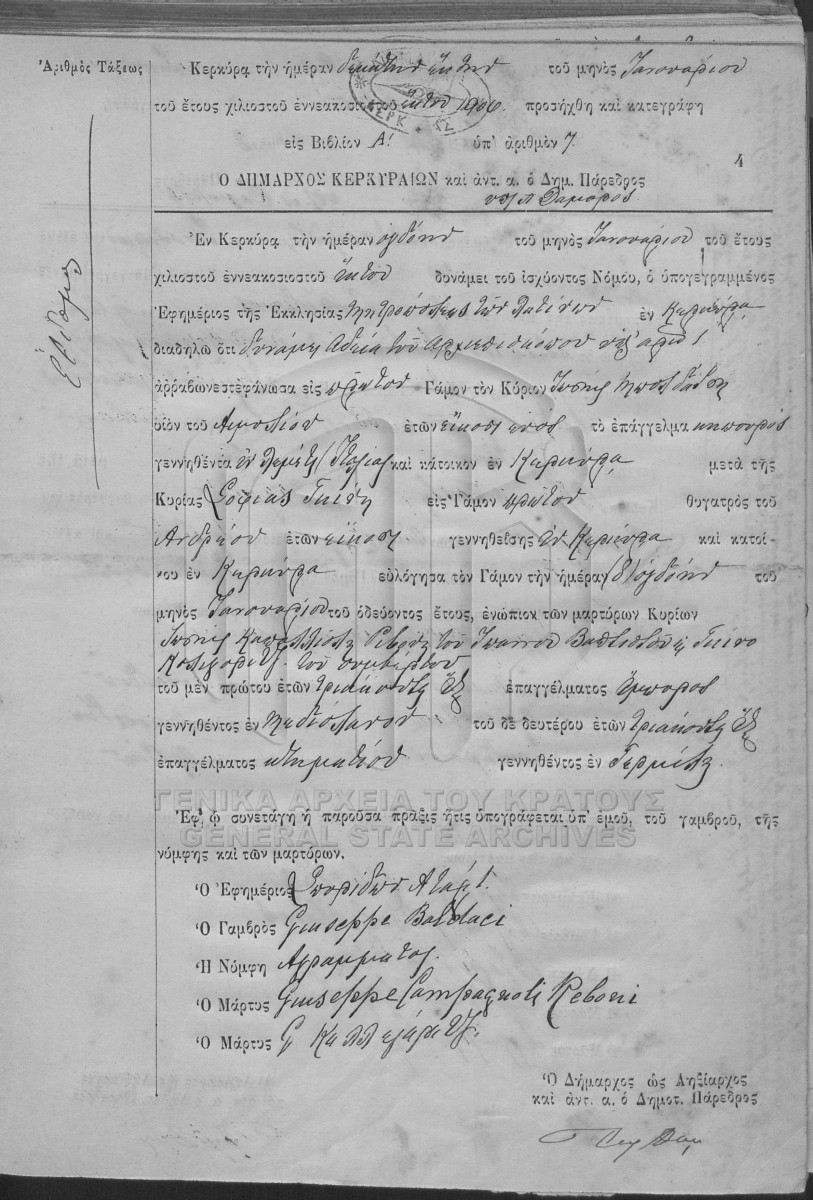 Ἀριθμὸς Τάξεως
Κερκύρᾳ τὴν ἡμέραν δεκάτην ἕκτην τοῦ μηνὸς Ἰανουαρίου
τοῦ ἔτους χιλιοστοῦ ἐννεακοσιοστοῦ ἕκτου 1906. προσήχθη καὶ κατεγράφη
εἰς Βιβλίον Α! ὑπ' ἀριθμὸν 7.
4
Ὁ ΔΗΜΑΡΧΟΣ ΚΕΡΚΥΡΑΙΩΝ καὶ ἀντ. α. ὁ Δημ. Πάρεδρος
Ἐν Κερκύρᾳ τὴν ἡμέραν ὀγδόην τοῦ μηνὸς Ἰανουαρίου τοῦ ἔτους
χιλιοστοῦ ἐννεακοσιοστοῦ ἕκτου δυνάμει τοῦ ἰσχύοντος Νόμου, ὁ ὑπογεγραμμένος
Ἐφημέριος τῆς Ἐκκλησίας Μητροπόλεως τῶν Λατίνων ἐν Κερκύρᾳ
διαδηλῶ ὅτι δυνάμει Ἀδείᾳ τοῦ Ἀρχιεπισκόπου ὑπ' ἀριθ 1
ἀρραβωνεστεφάνωσα εἰς πρῶτον Γάμον τὸν Κύριον Ἰωσὴφ
υἱὸν τοῦ ἐτῶν εἴκοσι ἑνός τὸ ἐπάγγελμα κηπουρός
γεννηθέντα ἐν Ἰταλίας καὶ κάτοικον ἐν Κερκύρᾳ μετὰ τῆς
Κυρίας Σοφίας εἰς Γάμον πρῶτον θυγατρὸς τοῦ
Ἀνδρέου ἐτῶν εἴκοσι γεννηθείσης ἐν Κερκύρᾳ καὶ κατοί-
κου ἐν Κερκύρᾳ εὐλόγησα τὸν Γάμον τὴν ἡμέραν (8) ὀγδόην τοῦ
μηνὸς Ἰανουαρίου τοῦ ὁδεύοντος ἔτους, ἐνώπιον τῶν μαρτύρων Κυρίων
Ἰωσὴφ τοῦ Ἰωάννου Βαπτιστοῦ
τοῦ
τοῦ μὲν πρώτου ἐτῶν τριάκοντα ἕξ ἐπαγγέλματος ἔμπορος
γεννηθέντος ἐν Μεδιόλανον τοῦ δὲ δευτέρου ἐτῶν τριάκοντα ἕξ
ἐπαγγέλματος κτηματίου γεννηθέντος ἐν
ΓΕΝΙΚΑ ΑΡΧΕΙΑ ΤΟΥ ΚΡΑΤΟΥΣ
GENERAL STATE ARCHIVES
Ἐφ' ᾧ συνετάγη ἡ παροῦσα πρᾶξις ἥτις ὑπογράφεται ὑπ' ἐμοῦ, τοῦ γαμβροῦ, τῆς
νύμφης καὶ τῶν μαρτύρων.
Ὁ Ἐφημέριος Σπυρίδων
Ὁ Γαμβρὸς Giuseppe Baldaci
Ἡ Νύμφη Ἀγράμματος.
Ὁ Μάρτυς Giuseppe Campagnoli Reboni
Ὁ Μάρτυς
Ὁ Δήμαρχος ὡς Ληξίαρχος
καὶ ἀντ. α. ὁ Δημοτ. Πάρεδρος